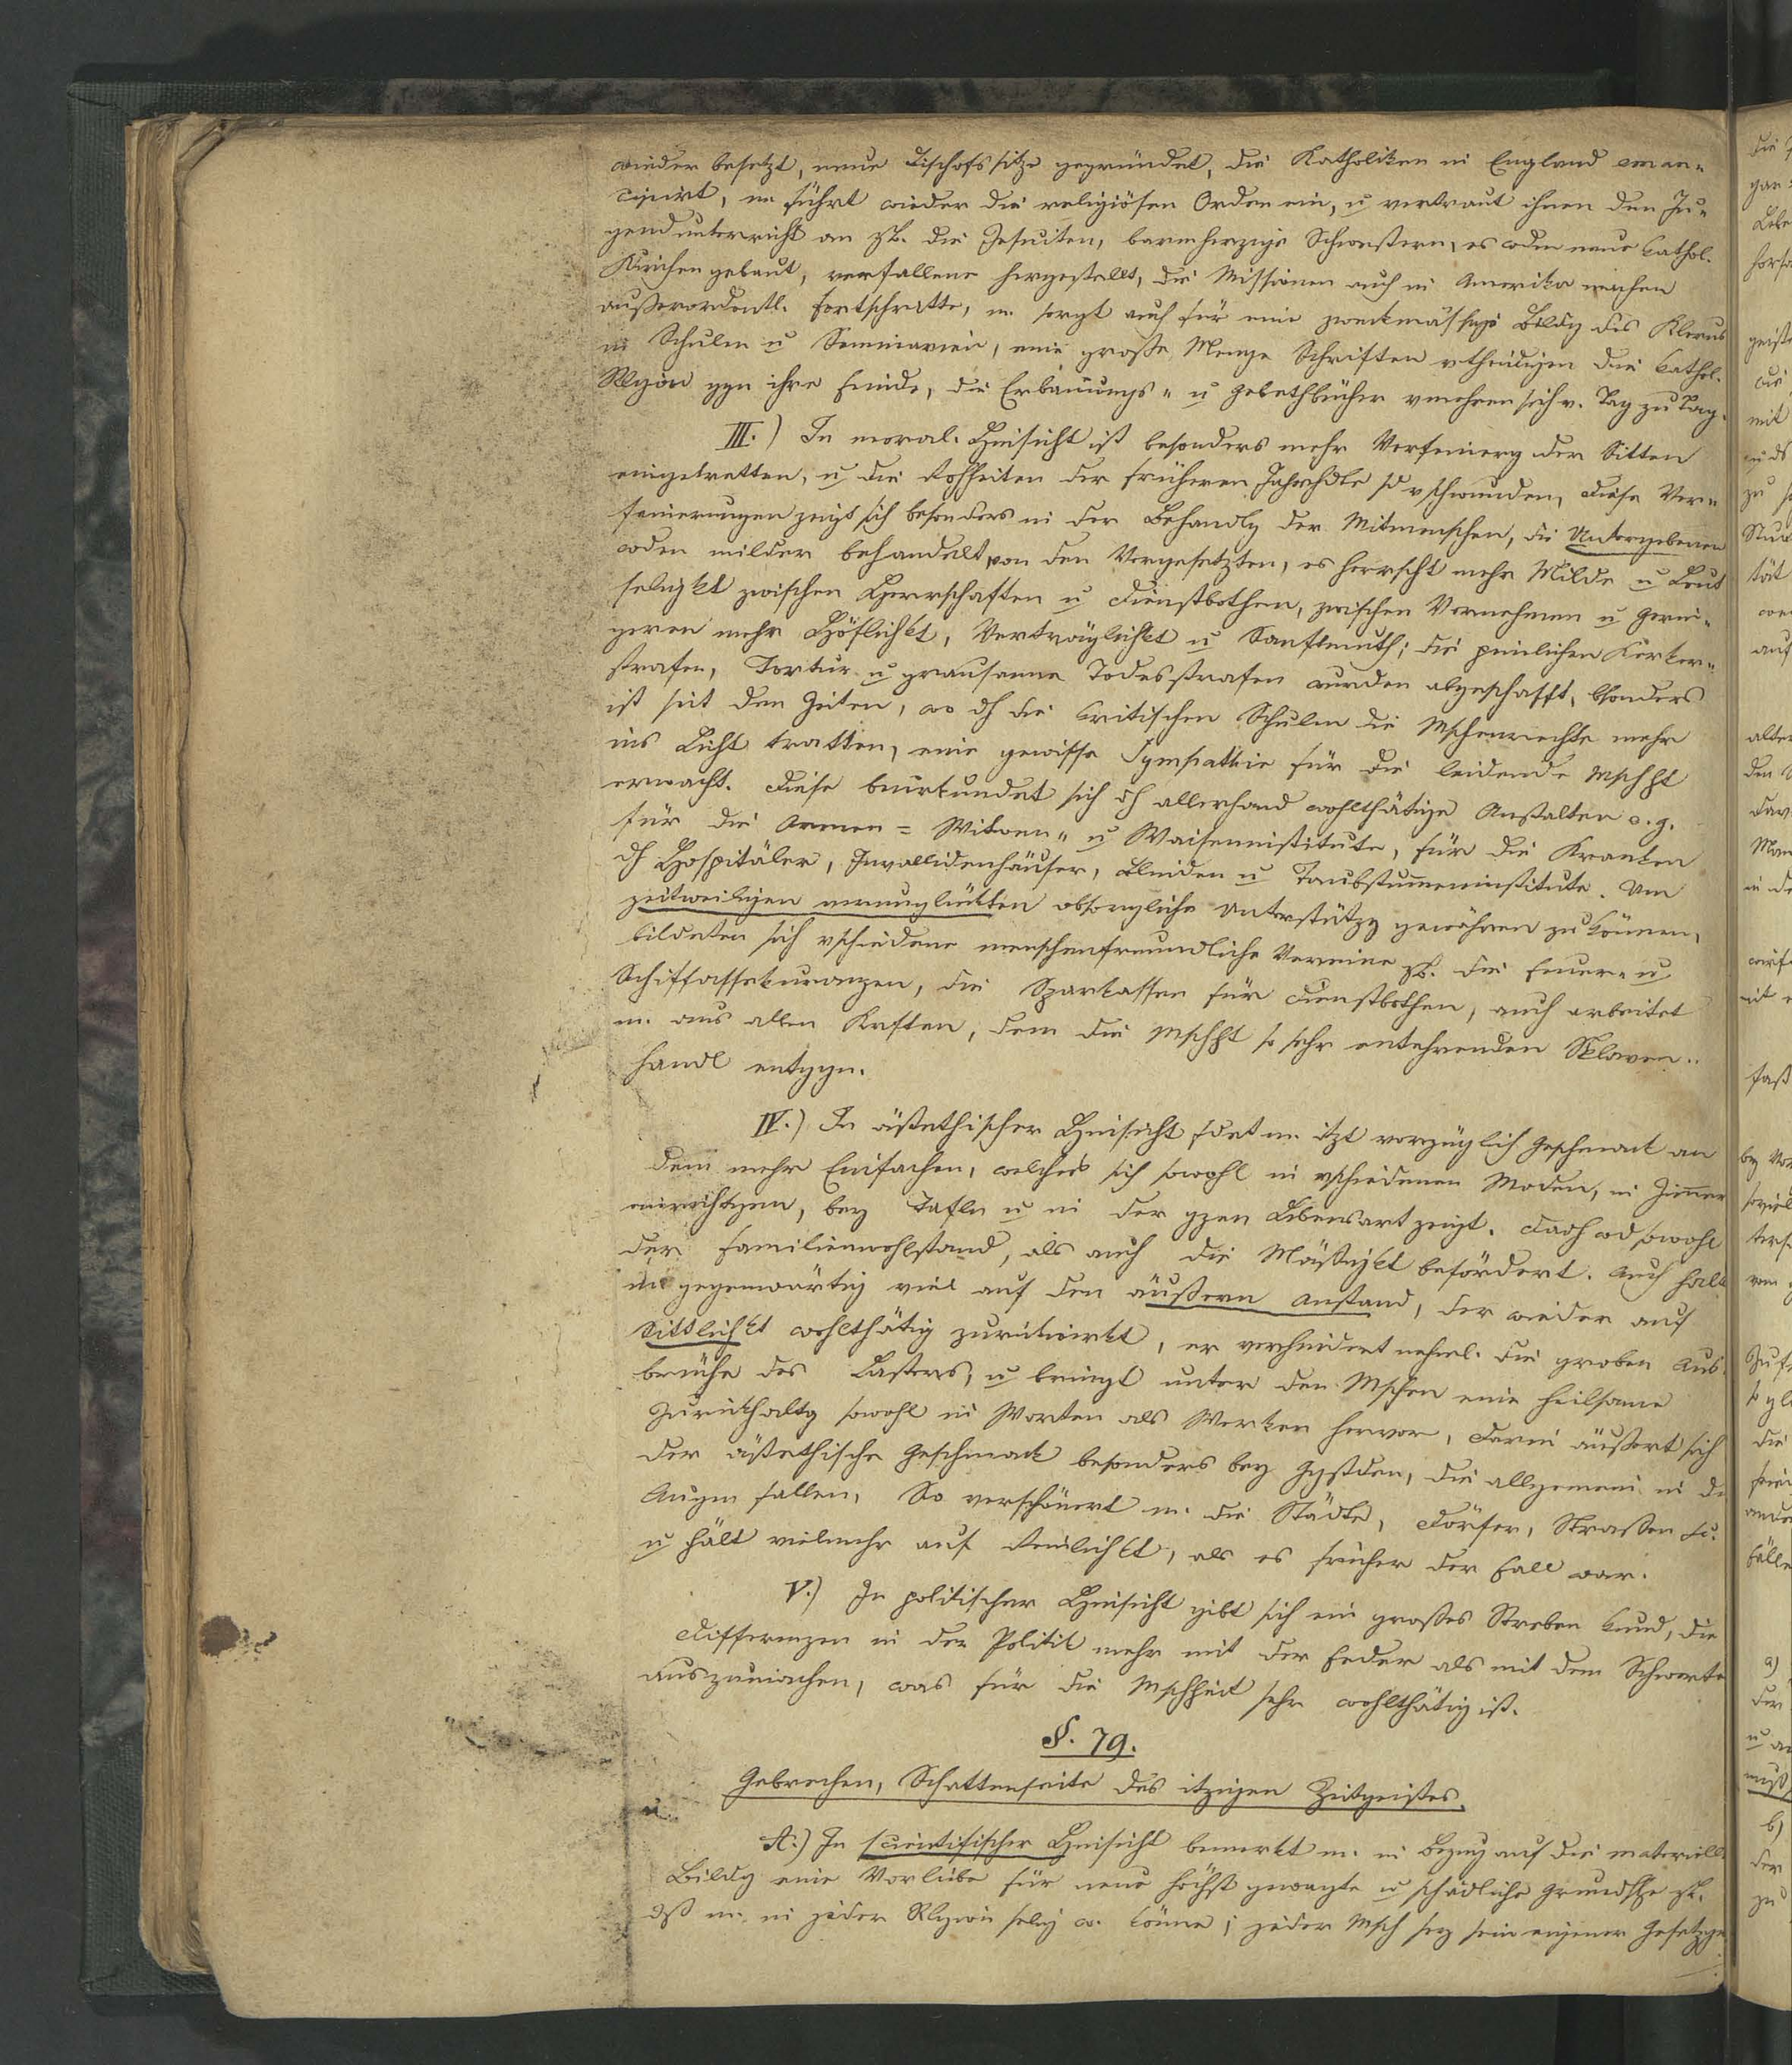 wieder besetzt, neue Bischofssitze gegründet, die Katholiken in England eman-
cipirt, m. führt wieder die religiösen Orden ein, u vertraut ihnen den Ju-
gendunterricht an zb. die Jesuiten, barmherzige Schwestern, es wden neue kathol.
Kirchen gebaut, verfallene hergestellt, die Missionen auch in Amerika machen
außerordentl. Fortschritte, m. sorgt auch für eine zweckmässige Bildg des Klerus
in Schulen u Seminarien, eine große Menge Schriften vtheidigen die kathol.
Religion ggn ihre Feinde, die Erbauungs- u Gebethbücher vmehren sich v. Tag zu Tag.
III.) In moral. Hinsicht ist besonders mehr Verfeinerg der Sitten
eingetretten, u die Rohheiten der früheren Jahrhdte sd vschwunden, diese Ver-
feinerungen zeigt sich besonders in der Behandlg der Mitmenschen, die Untergebenen
wden milder behandelt von den Vorgesetzten, es herrscht mehr Milde u Leut
seligkt zwischen Herrschaften u Dienstbothen, zwischen Vornehmen u Gerin-
geren mehr Höflichkt, Verträglichkt u Sanftmuth; die peinlichen Kerker-
strafen, Tortur u grausame Todesstrafen wurden abgeschafft, bsonders
ist seit den Zeiten, wo dh die kritischen Schulen die Mschenrechte mehr
ins Licht tratten, eine gewisse Sympathie für die leidende Mschht
erwacht. Diese beurkundet sich dh allerhand wohlthätige Anstalten v. g.
für die Armen = Witwen- u Waiseninstitute, für die Kranken
dh Hospitäler, Invallidenhäuser, Blinden u Taubstummeninstitute. Um
zeitweiligen verunglückten obsorgliche Unterstützg gewähren zu können,
bildeten sich vschiedene menschenfreundliche Vereine zb. die Feuer- u
Schiffassekuranzen, die Sparkassen für Dienstbothen, auch arbeitet
m. aus allen Kräften, dem die Mschht so sehr entehrenden Sklaven-
handl entggn.
IV.) In ästethischer Hinsicht fdet m. itzt vorzüglich Geschmack an
dem mehr Einfachen, welches sich sowohl in vschiedenen Moden, in Zimmer
einrichtgen, bey Tafln u in der gzen Lebensart zeigt. Dadh wd sowohl
der Familienwohlstand, als auch die Mäßigkt befördert. Auch halt
m gegenwärtig viel auf den äußern Anstand, der wieder auf
Sittlichkt wohlthätig zurückwirkt, er verhindert nehml. die groben Aus-
brüche des Lasters, u bringt unter den Mschen eine heilsame
Zurückhaltg sowohl in Worten als Werken hervor, darin äußert sich
der ästethische Geschmack besonders bey Ggstden, die allgemein in die
Augen fallen, So verschönert m. die Städte, Dörfer, Straßen &c.
u hält vielmehr auf Reinlichkt, als es früher der Fall war.
V.) In politischer Hinsicht gibt sich ein großes Streben kund, die
Differenzen in der Politik mehr mit der Feder als mit dem Schwerte
auszumachen, was für die Mschheit sehr wohlthätig ist.
§. 79.
Gebrechen, Schattenseite des itzigen Zeitgeistes.
A.) In scientifischer Hinsicht bemerkt m. in Bezug auf die materiell
Bildg eine Vorliebe für neue höchst gewagte u schädliche Grundsze zb.
dß m. in jeder Rlgion selig w. könne; jeder Msch sey sein eigener Gesetzge